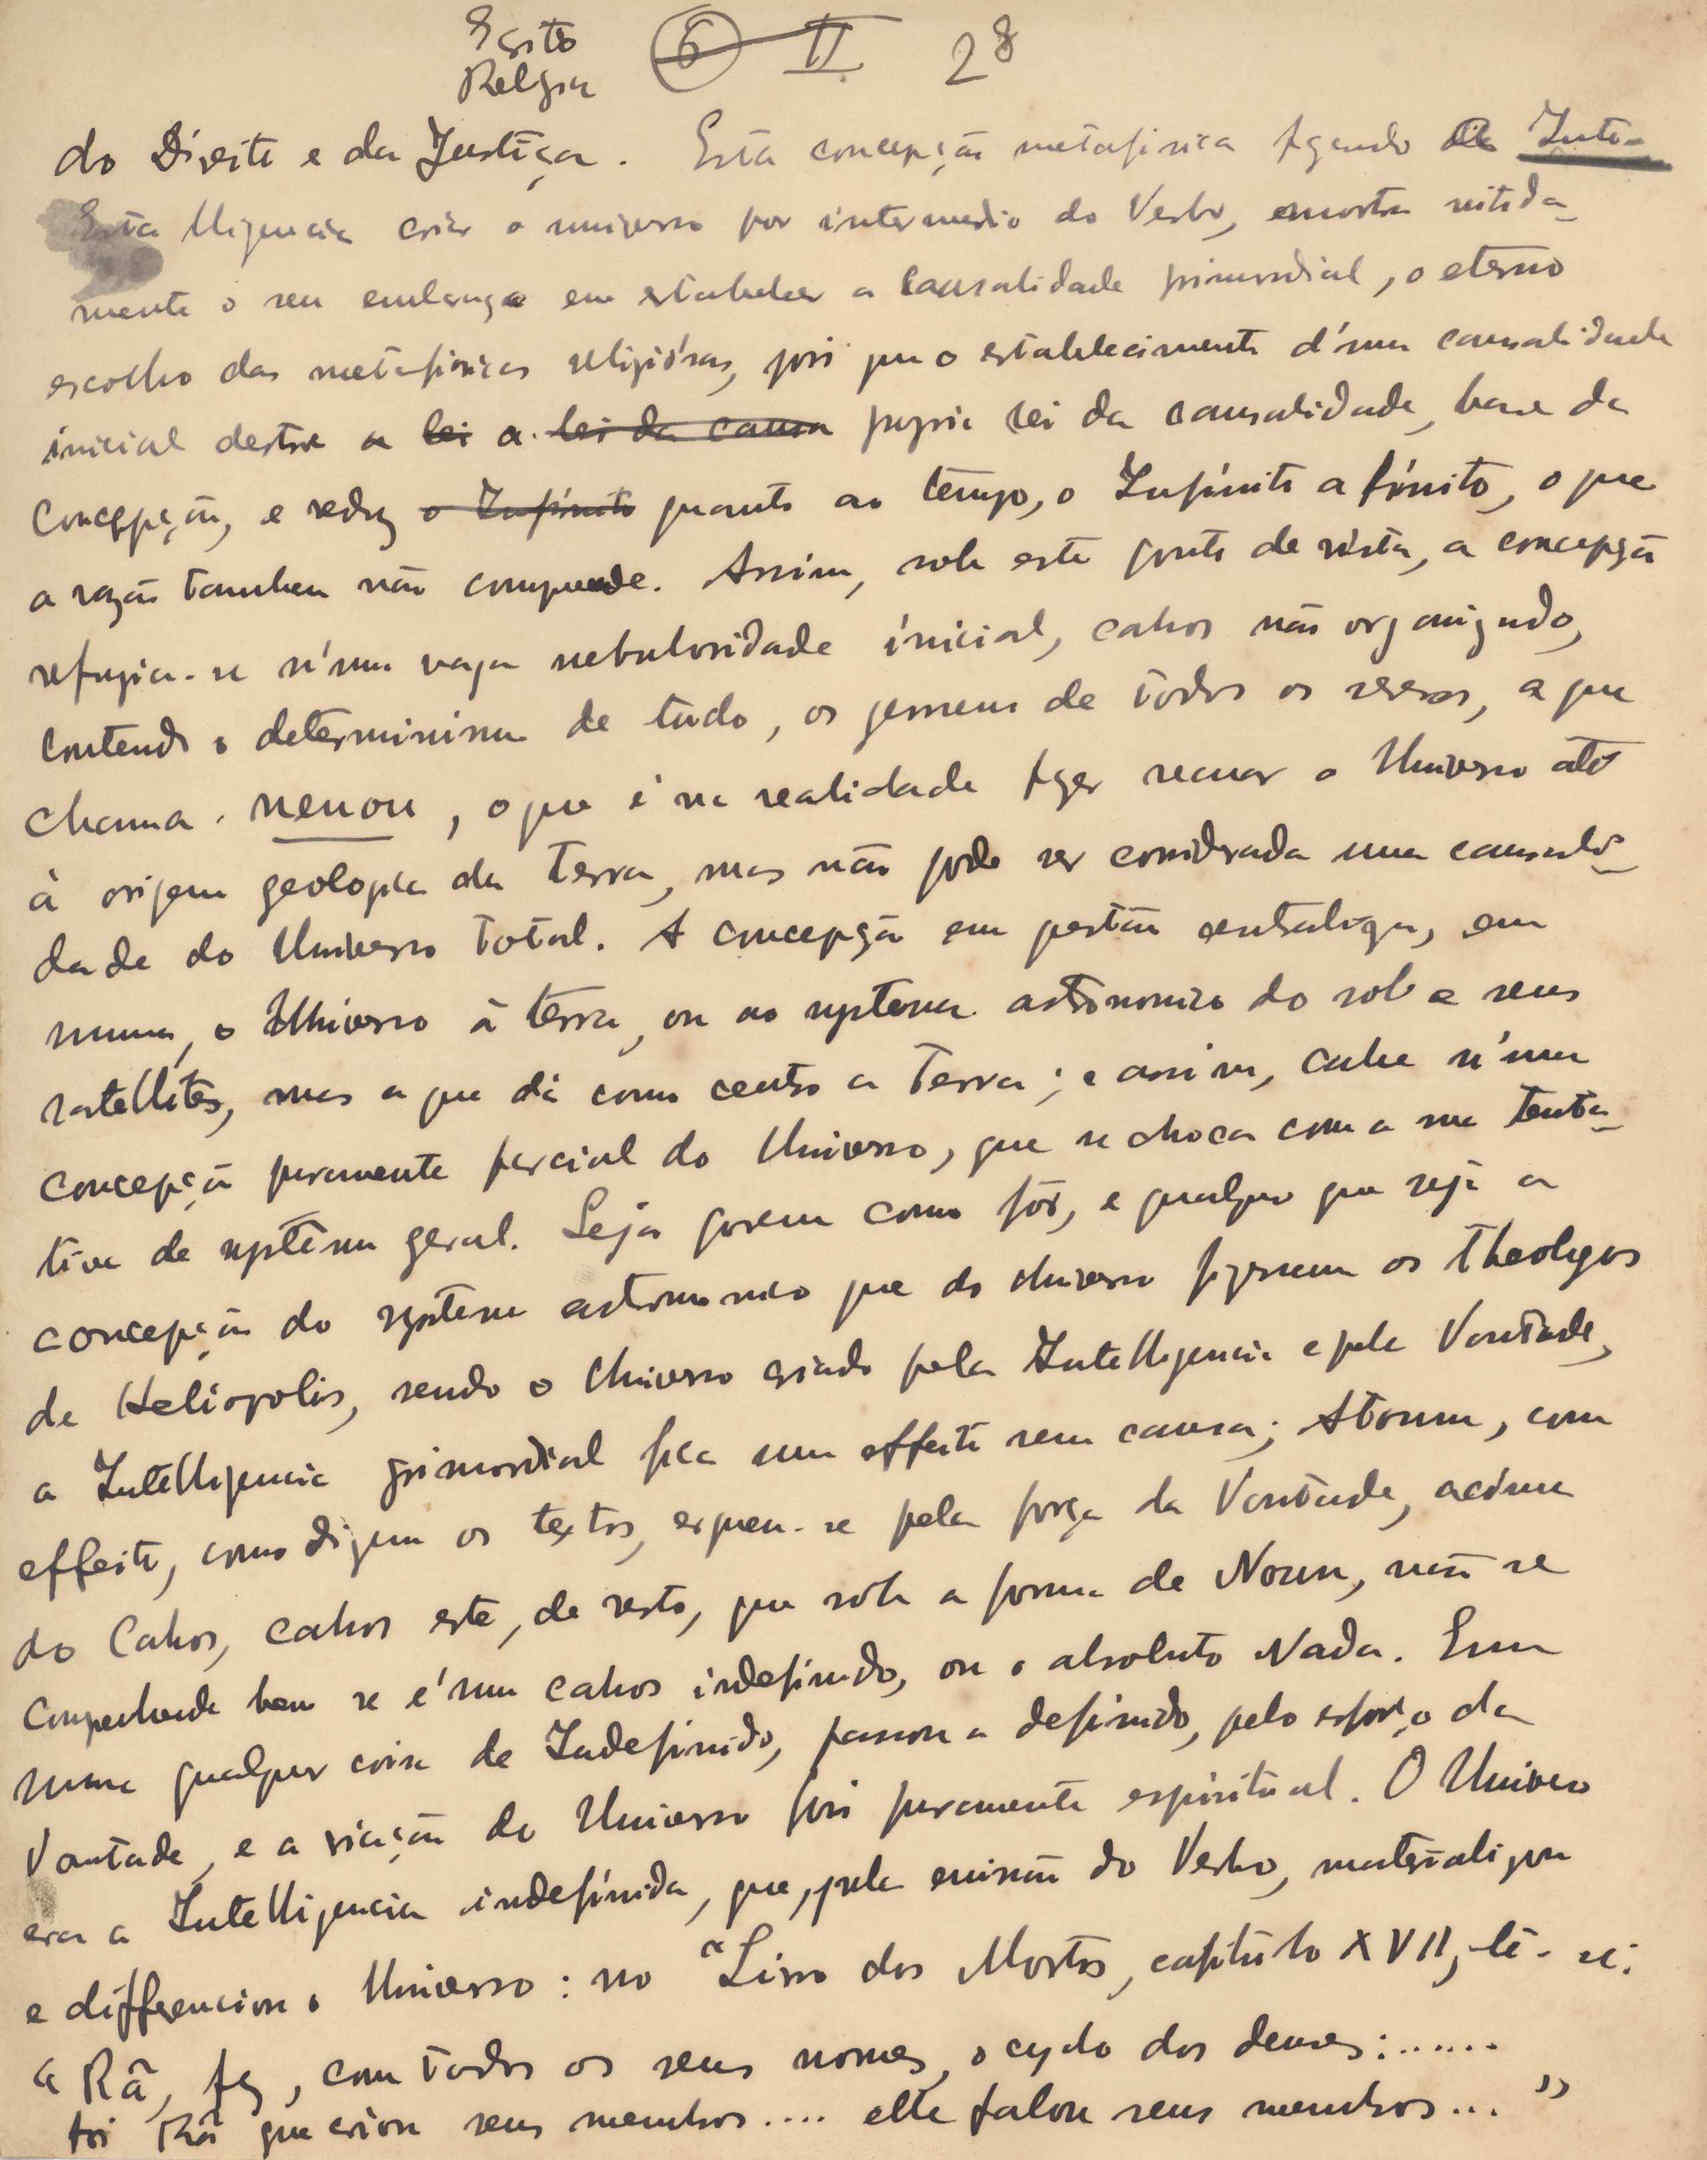 Egito
Relgia 6 II 28
do Direito e da Justiça. Esta concepção metafisica fazendo da Inte-
Esta lligencia criar o universo por intermedio do Verbo, mostra nitida-
mente o seu embaraço em estabelecer a causalidade primordial, o eterno
escolho das metafisicas religiosas, pois que o estabelecimento d'uma causalidade
inicial destroe a lei a lei da causa propria lei da causalidade, base da
concepção, e reduz o Infinito quanto ao tempo, o Infinito a finito, o que
a razão tambem não compreende. Assim, sob este ponto de vista, a concepção
refugia-se n'uma vaga nebulosidade inicial, cahos não organizado,
contendo o determinismo de tudo, os germens de todos os seres, a que
chama nenou, o que é na realidade fazer recuar o Universo até
á origem geologica da Terra, mas não pode ser considerada uma causali-
dade do Universo total. A concepção em questão centraliza, em
summa, o Universo á terra, ou ao systema astronomico do sol e seus
satellites, mas a que dá como centro a Terra; e assim, cahe n'uma
concepção puramente parcial do Universo, que se choca com a sua tenta-
tiva de systema geral. Seja porem como fôr, e qualquer que seja a
concepção do systema astronomico que do Universo fizessem os Theologos
de Heliopolis, sendo o Universo criado pela Intelligencia e pela Vontade,
a Intelligencia primordial fica um effeito sem causa; Atoum, com
effeito, como dizem os textos, ergueu-se pela força da Vontade, acima
do Cahos, cahos este, de resto, que sob a forma de Noun, não se
comprehende bem se é um cahos indefinido, ou o absoluto Nada. Em
suma qualquer coisa de Indefinido, passou a definido, pelo esforço da
Vontade, e a criação do Universo foi puramente espiritual. O Universo
era a Intelligencia indefinida, que, pela emissão do Verbo, materializou
e differenciou o Universo: no "Livro dos Mortos, capitulo XVII, lê-se:
"Râ, fez, com todos os seus nomes, o cyclo dos deuses:......
foi Râ que criou seus membros.... elle falou seus membros..."